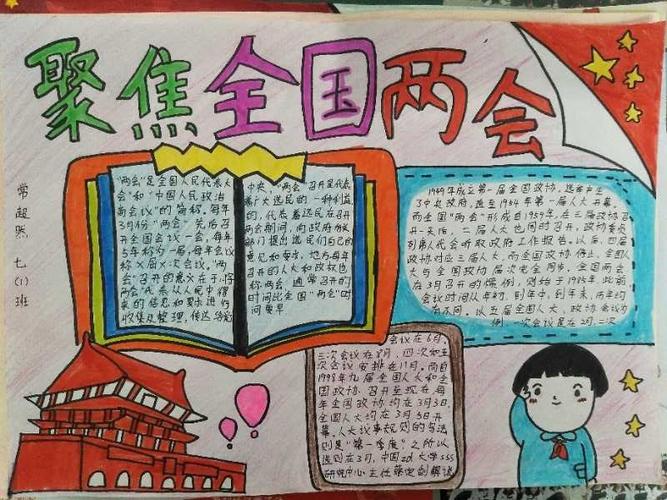 聚焦全国两会
常超然 七(1)班
"两会"是全国人民代表大
会"和"中国人民政治
商会议"的简称。每年
3月份"两会"先后召
开全国会议一会,每年
5年称为一届,每年会议
称X届X次会议,"两
会"召开的意义在于:将
"两会"代表从人民中得
来的信息和要求进行
收集及整理,传达给党
中央,"两会"召开是代表
着广大选民的一种利益
的,代表着选民在召开
两会期间,向政府有关
部门提出选民们自己的
意见和要求,地方每年
召开的人大和政协也
称两会,通常召开的
时间比全国"两会"时
间要早
1949年成立第一届全国政协,选举产生
了中央政府,直至1954年第一届人大开幕,
而全国"两会"形成自1959年,在三届政协召
开一天后,二届人大也同时召开,政协委员
列席人代会听取政府工作报告。以后,四届
政协对应三届人大,而全国政协停止,全国人
大与全国政协届次完全同步,全国两会
在3月召开的惯例,则始于1985年,此前
会议时间从年初,到年中,到年末,历年均
有不同。以五届全国人大,政协会议为
例,一次会议是在2月,二次
会议在6月,
三次会议在8月,四次和五
次会议安排在11月。而自
1998年九届全国人大和全
国政协召开至现在,每
年全国政协均在3月3日,
全国人大均在3月5日开
幕。人大议事规则的写法
则是"第一季度"之所以
选则在3月,中国
研究中心主任蔡定剑解读